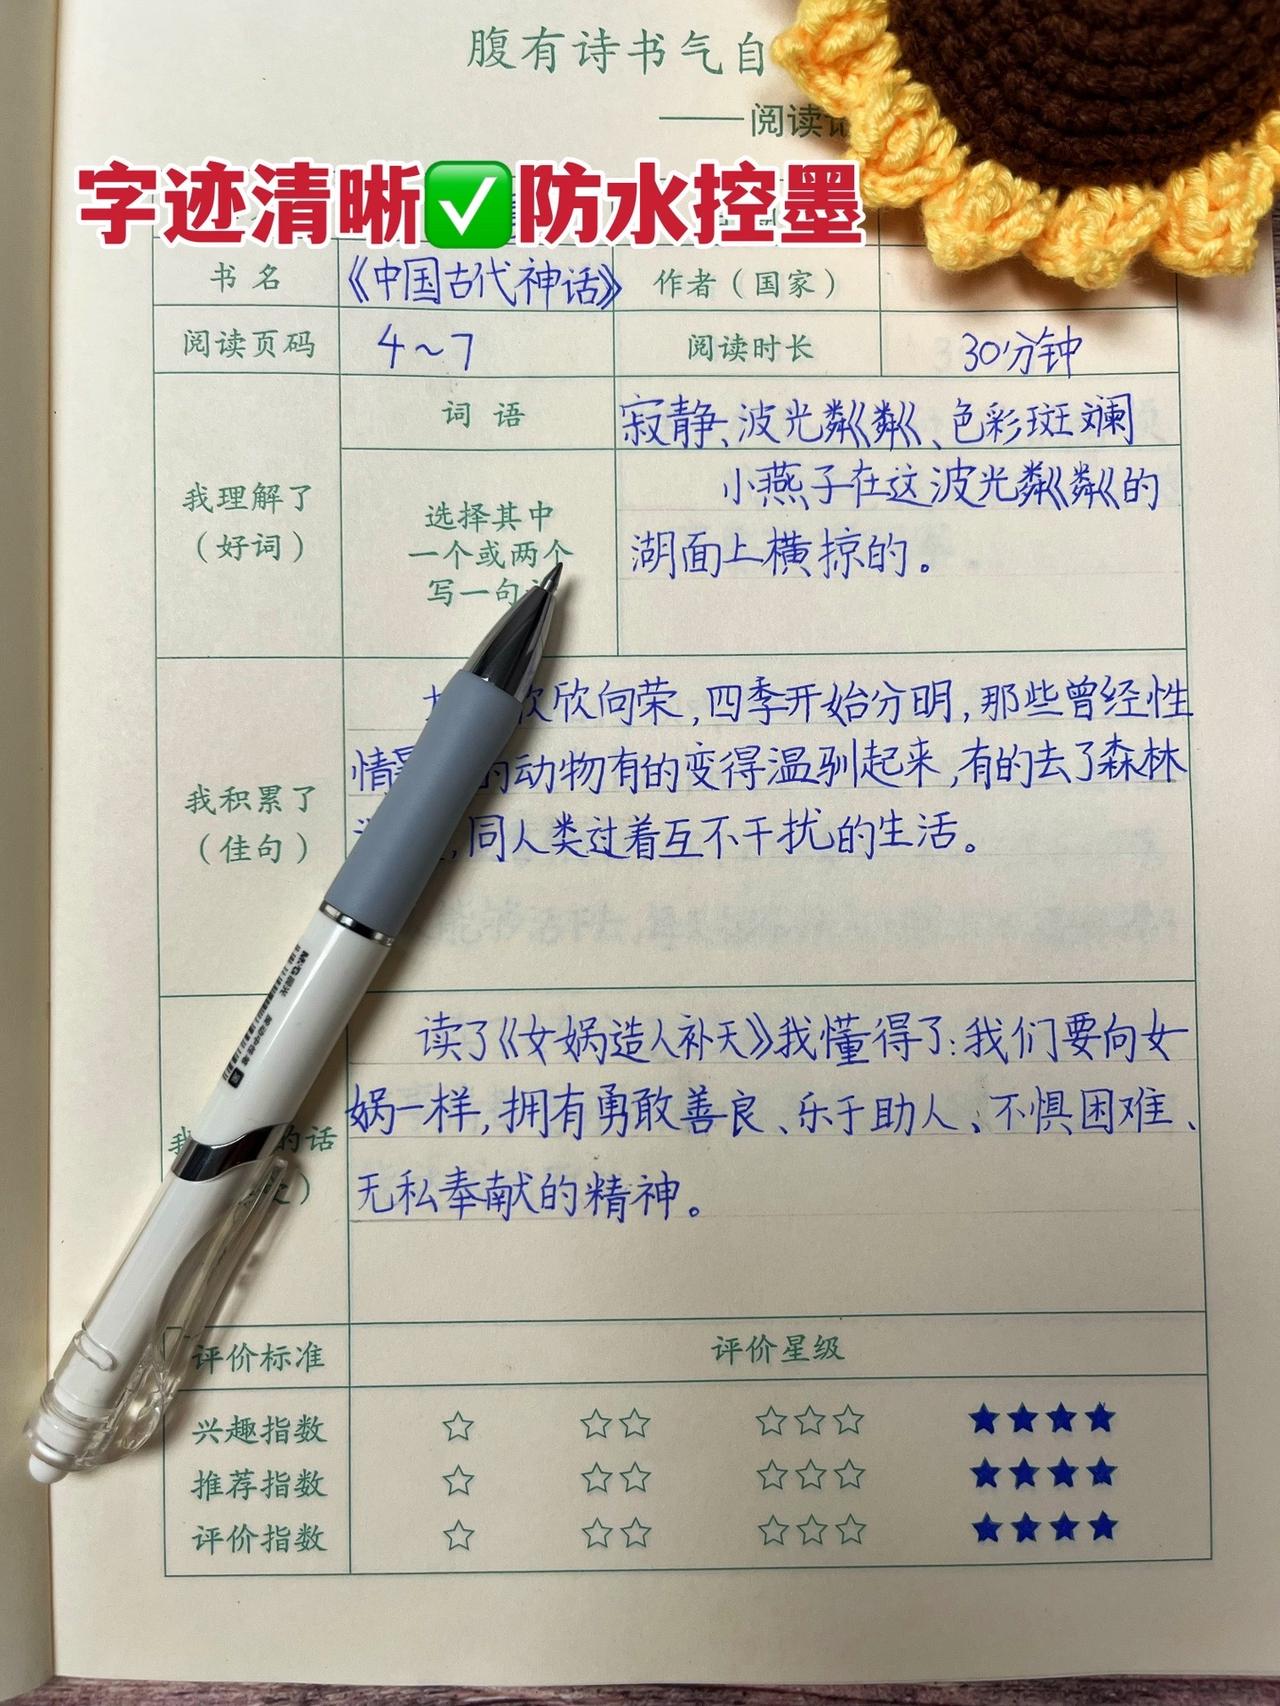 腹有诗书气自
——阅读
字迹清晰✅防水控墨
书名 《中国古代神话》 作者(国家)
阅读页码 4～7 阅读时长 30分钟
我理解了
(好词)
词语 寂静、波光粼粼、色彩斑斓
选择其中
一个或两个
写一句
小燕子在这波光粼粼的
湖面上横掠的。
我积累了
(佳句)
欣欣向荣,四季开始分明,那些曾经性
情 的动物有的变得温驯起来,有的去了森林
,同人类过着互不干扰的生活。
我 的话
读了《女娲造人补天》我懂得了:我们要向女
娲一样,拥有勇敢善良、乐于助人、不惧困难、
无私奉献的精神。
M&G晨光
评价标准 评价星级
兴趣指数 ☆ ☆☆ ☆☆☆ ★★★★
推荐指数 ☆ ☆☆ ☆☆☆ ★★★★
评价指数 ☆ ☆☆ ☆☆☆ ★★★★